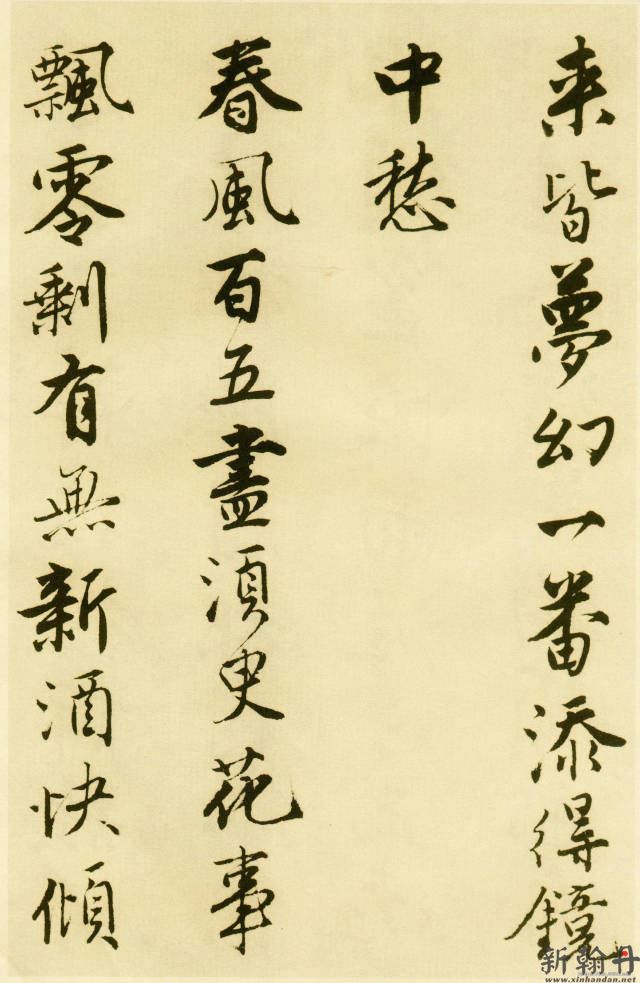 来皆夢幻一番添得鏡
中愁
春風百五盡須臾花事
飄零剩有無新酒快傾
新翰丹
www.xinhandan.net